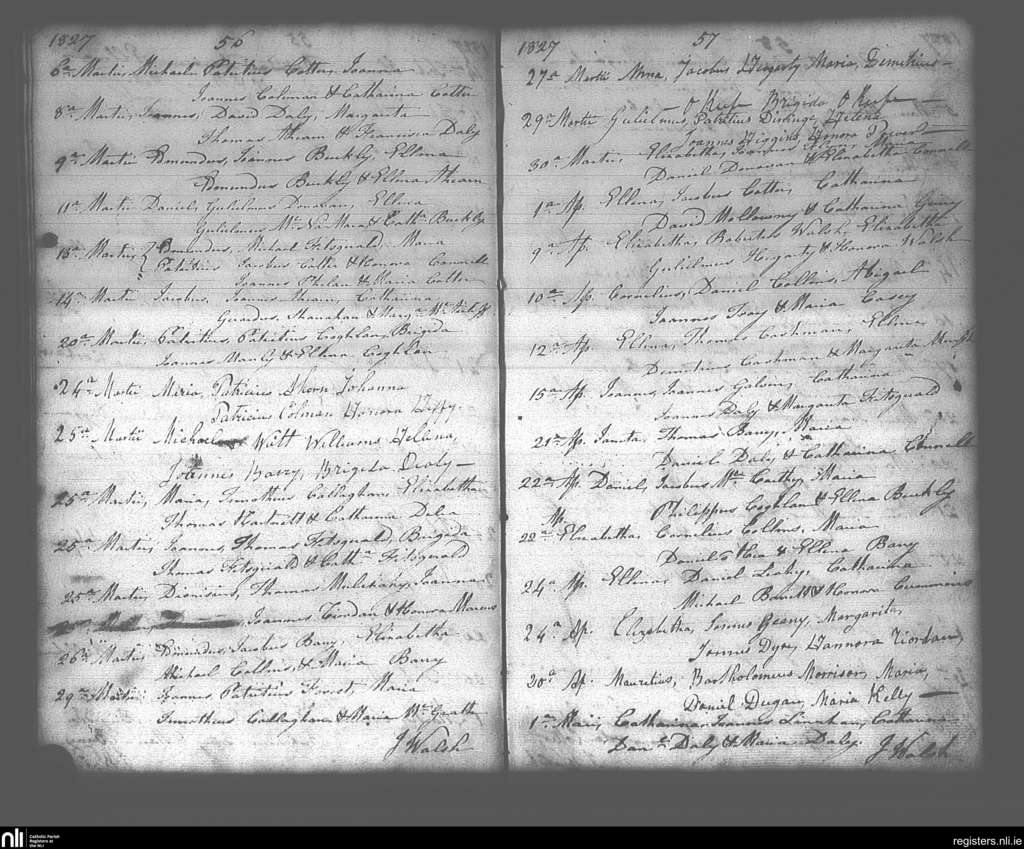 1827 56
6a Martii, Michael, Patritius Cotter, Joanna
Joannes Coleman & Catharina Cotter
8a Martii, Joannes, David Daly, Margarita
Thomas Ahearn & Francisca Daly
9a Martii Edmundus, Joannes Buckly, Ellena
Edmundus Buckly & Ellena Ahearn
11a Martii Daniel, Gulielmus Donovan, Ellena
Gulielmus McNamara & Cathn Buckly
13a Martii, { Edmundus, Michael Fitzgerald, Maria
Patritius Jacobus Cotter & Honora Connell
Joannes Phelan & Maria Cotter
14a Martii Jacobus, Joannes Ahearn, Catharina
Gerardus Shanahan & Marg
20a Martii, Patritius, Patritius Coghlan, Brigida
Joannes Manly & Ellena Coghlan
24a Martii Maria, Patricius Ahern Johanna
Patricius Colman Honora Heffy.
25a Martii Michael Watt Williams Helena,
Joannes Barry, Brigida Dealy —
25a Martii, Maria, Timotheus Callaghan, Elizabetha
Thomas Hartnett & Catharina Dlea
25a Martii, Joannes, Thomas Fitzgerald, Brigida
Thomas Fitzgerald & Cathn Fitzgerald
25a Martii, Dionisius, Thomas Mulcahy, Joanna
Joannes & Honora
26a Martii, Edmundus, Jacobus Barry, Elizabetha
Michael Collins & Maria Barry
29a Martii Joannes Patritius Forrest, Maria
Timotheus Callaghan & Maria McGrath
J Walsh
1827 57
27a Martii Anna, Jacobus Hegerty Maria, Dimitrius —
O Keefe Brigida O Keefe —
29a Martii Gulielmus, Patritius Helena
Joannes Higgins Honora Power
30a Martii, Elizabetha, Joannes
Daniel Donovan & Elizabetha Connell
1a Ap. Ellena, Jacobus Cotter, Catharina
David Mollowny & Catharina Geary
9a Ap. Elizabetha, Robertus Walsh, Elizabetha
Gulielmus Hegarty & Honora Walsh
10a Ap. Cornelius, Daniel Collins, Abigail
Joannes Foay & Maria Casey
12a Ap. Ellena, Thomas Cashman, Ellena
Demetrius Cashman & Margarita Murphy
15a Ap. Joannes, Joannes Galvin, Catharina
Joannes Daly & Margarita Fitzgerald
21a Ap. Janeta, Thomas Barry, Maria
Daniel Daly & Catharina Connell
22a Ap. Daniel, Jacobus McCarthy, Maria
Philippus Coghlan & Ellena Buckly
Ap.
22a Elizabetha, Cornelius Collins, Maria
Daniel & Ellena Barry
24a Ap. Ellena, Daniel Leahy, Catharina
Michael Barrett & Honora Cummins
24a Ap. Elizabetha, Geany, Margarita,
Dyer, Hannora Riordan,
30a Ap. Mauritius, Bartholomeus Morrison, Maria,
Daniel Dugan, Maria Kelly —
1a Maii, Catharina, Joannes Linehan, Catharina
Danl Daly & Maria Daly.
J Walsh
nli Catholic Parish
Registers at
the NLI
registers.nli.ie